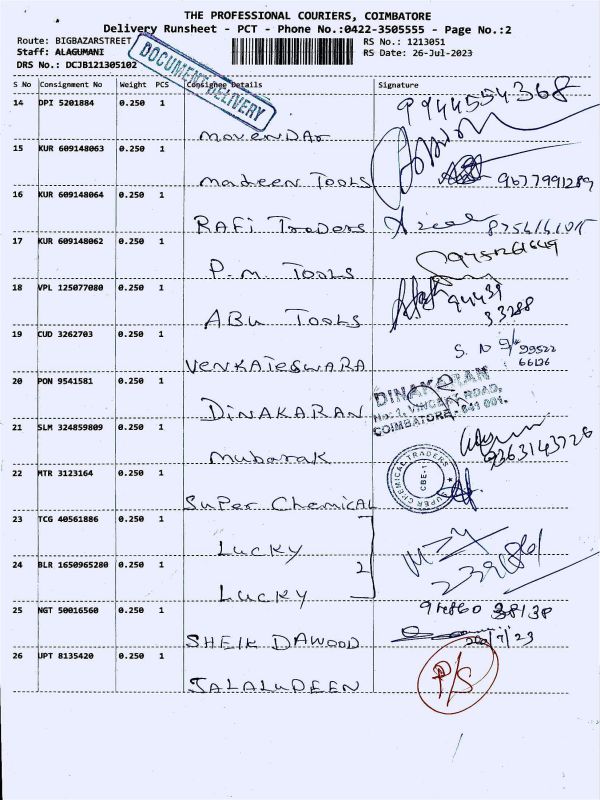 THE PROFESSIONAL COURIERS, COIMBATORE
Delivery Runsheet - PCT - Phone No.:0422-3505555 - Page No.:2
Route: BIGBAZARSTREET
RS No.: 1213051
Staff: ALAGUMANI
RS Date: 26-Jul-2023
DRS No.: DCJB121305102
DOCUMENT DELIVERY
S No Consignment No Weight PCS Consignee Details Signature
14 DPI 5201884 0.250 1
MOVENDAr
9944554368
15 KUR 609148063 0.250 1
madeen Tools
9677991289
16 KUR 609148064 0.250 1
RAFi Traders
17 KUR 609148062 0.250 1
P.m Tools
18 VPL 125077080 0.250 1
ABU Tools
94439
33288
19 CUD 3262703 0.250 1
VENKATESWARA
99522
66136
20 PON 9541581 0.250 1
DINAKARAN
DINAKARAN
No: 1, VINCENT ROAD,
COIMBATORE - 641 001.
21 SLM 324859809 0.250 1
mubarak
9363143726
22 MTR 3123164 0.250 1
SuPer ChemicAL
SUPER CHEMICAL TRADERS
CBE-1
23 TCG 40561886 0.250 1
LUCKY
24 BLR 1650965280 0.250 1
LUCKY
2
25 NGT 50016560 0.250 1
SHEIK DAWOOD
94860 38138
26 JPT 8135420 0.250 1
JALALUDEEN
P/S